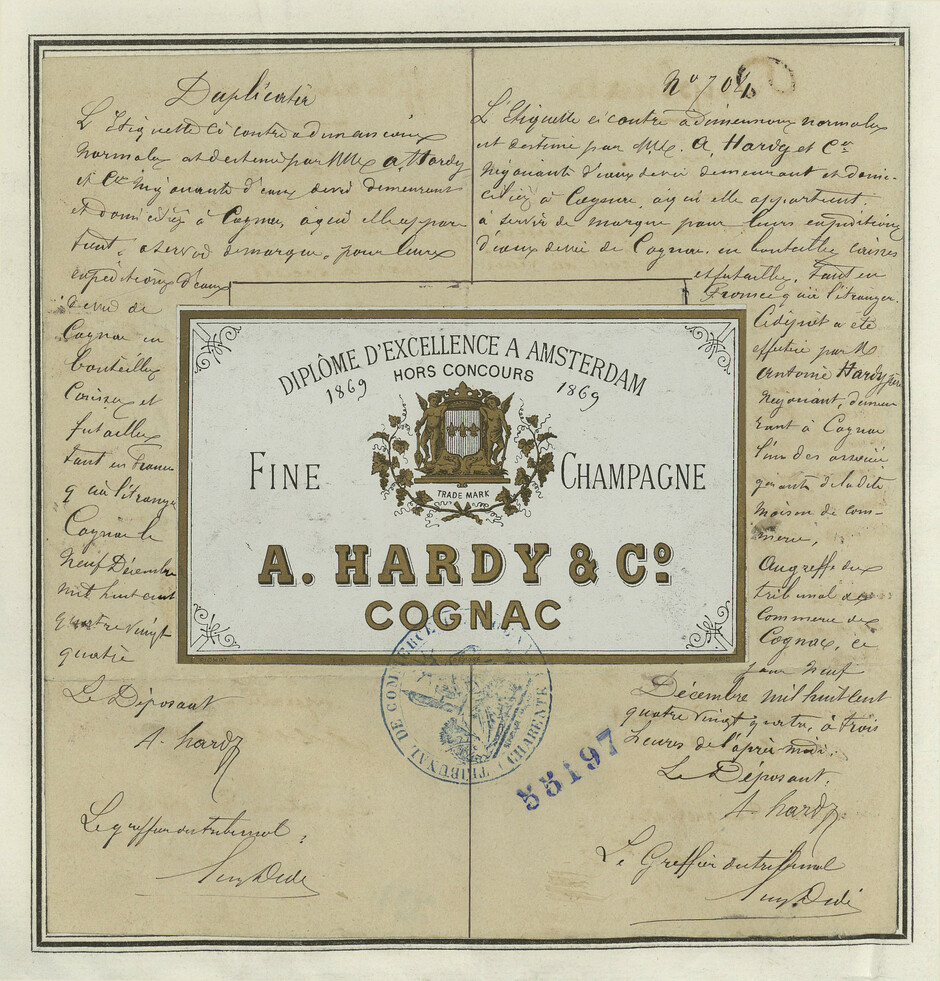 Duplicata
L'Etiquette ci contre a dimensions
normales est destinée par MM. A. Hardy
et Cie Négociants d'eaux de vie demeurant
et domiciliés à Cognac, à qui elle appar
tient, à servir de marque, pour leurs
expéditions d'eaux
de vie de
Cognac en
bouteilles
Caisses et
futailles
tant en France
qu'à l'étranger
Cognac le
Neuf Décembre
mil huit cent
quatre vingt
quatre
Le Déposant
A. Hardy
Le greffier du tribunal
No 704
L'Etiquette ci contre à dimensions normales
est destinée par MM. A. Hardy et Cie
Négociants d'eaux de vie demeurant et domi-
ciliés à Cognac, à qui elle appartient,
à servir de marque pour leurs expéditions
d'eaux de vie de Cognac, en bouteilles caisses
et futailles, tant en
France qu'à l'étranger.
Ce dépôt a été
effectué par M
Antoine Hardy père
Négociant, demeu
rant à Cognac
l'un des associés
gérants de la dite
maison de com-
merce,
Au greffe du
tribunal de
Commerce de
Cognac, ce
jour neuf
Décembre mil huit cent
quatre vingt quatre, à trois
heures de l'après midi.
Le Déposant.
A. Hardy
Le Greffier du tribunal
DIPLÔME D'EXCELLENCE A AMSTERDAM
1869 HORS CONCOURS 1869
FINE CHAMPAGNE
TRADE MARK
A. HARDY & Co.
COGNAC
TRIBUNAL DE COMMERCE
CHARENTE
55197